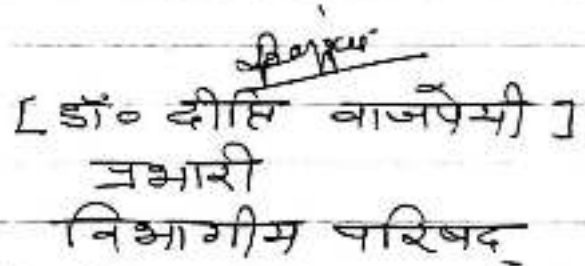 [ डॉ० दीप्ति वाजपेयी ]
प्रभारी
विभागीय परिषद्